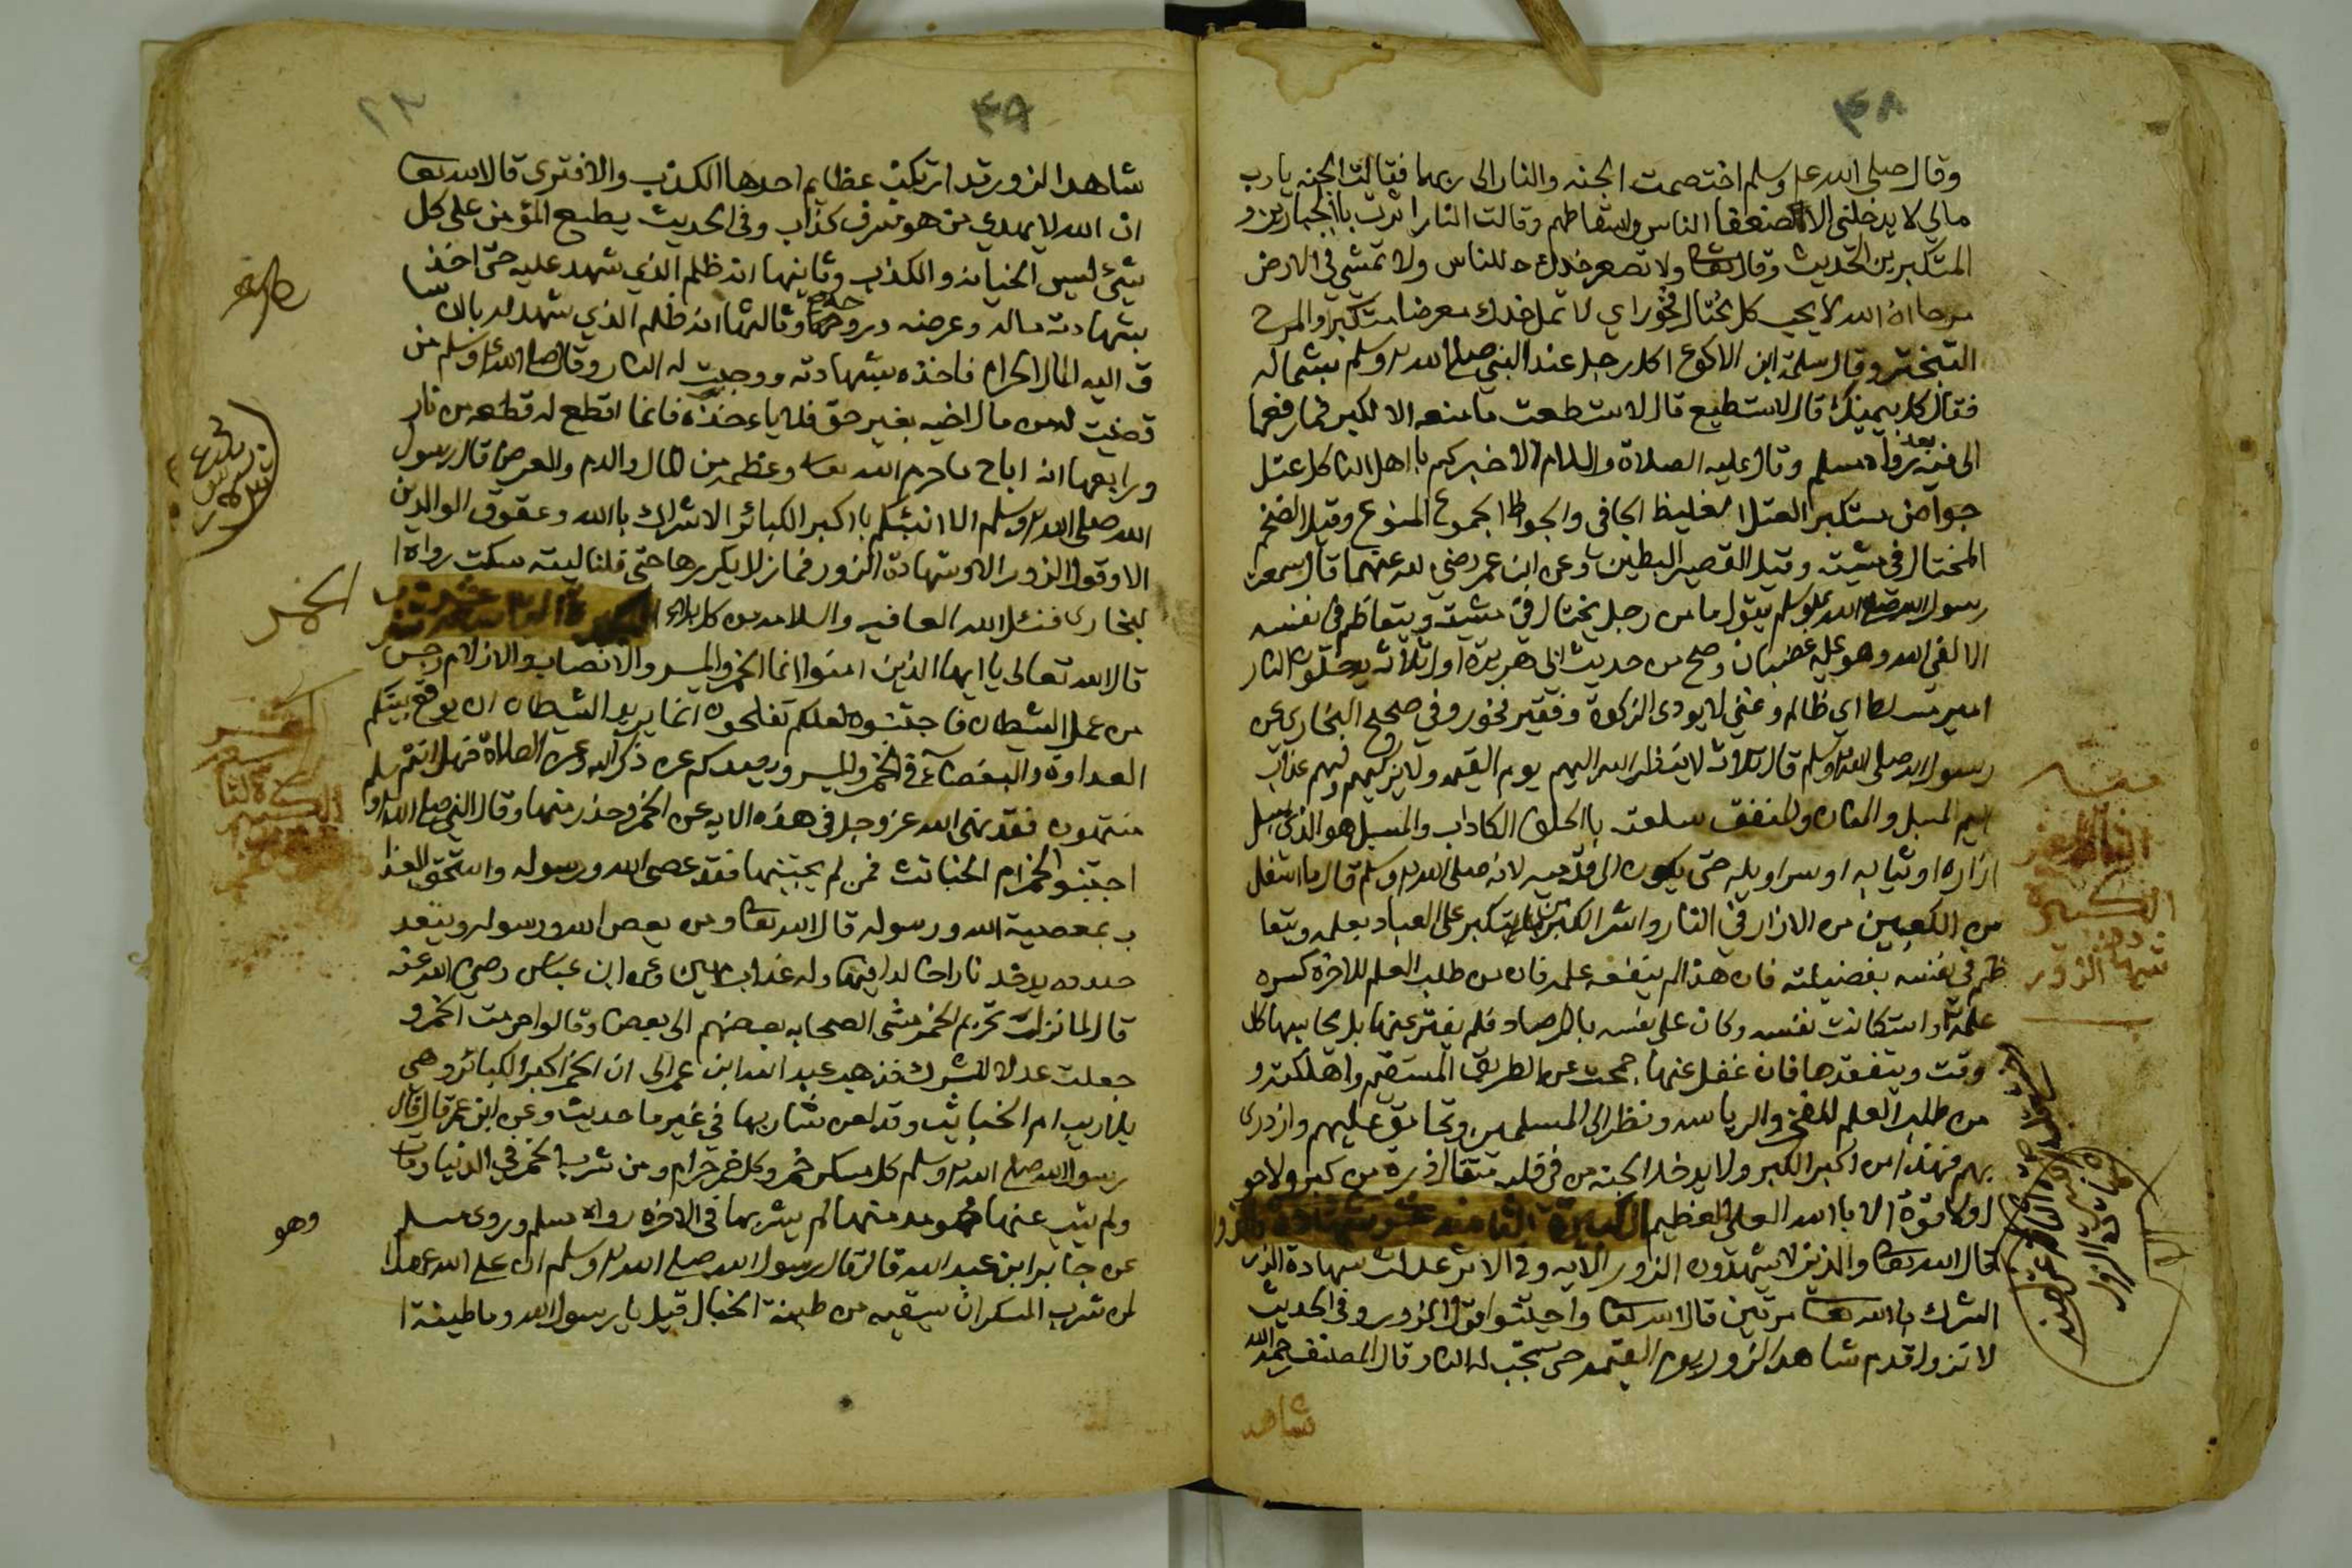 ٣٨
وقال صلى الله عليه وسلم اختصمت الجنه والنار الى ربها فقالت الجنه يا رب
مالي لا يدخلني الا ضعفا الناس واسقاطهم وقالت النار اثرت باالجبارين و
المتكبرين الحديث وقال تعا ولا تصعر خدك للناس ولا تمشي في الارض
مرحا ان الله لا يحب كل مختال فخور اي لا تمل خدك معرضا متكبرا والمرح
التبختر وقال سلمة ابن الاكوع اكل رجل عند النبي صلى الله عليه وسلم بشماله
فقال كل بيمينك قال لا استطيع قال لا استطعت ما منعه الا لكبر فما رفعها
الى فيه بعد رواه مسلم وقال عليه الصلاة والسلام الا اخبركم باهل النار كل عتل
جواض مستكبر العتل الغليظ الجافي والجواظ الجموع المنوع وقيل الضخم
المختال في مشيته وقيل القصير البطين وعن ابن عمر رضي الله عنهما قال سمعت
رسول الله صلى الله عليه وسلم يقول ما من رجل يختال في مشيته ويتعاظم في نفسه
الا لقي الله وهو عليه غضبان وصح من حديث ابي هريرة اول ثلاثه يدخلون النار
امير مسلط اي ظالم وغني لا يودى الزكوة وفقير فخور وفي صحيح البخاري عن
رسول الله صلى الله عليه وسلم قال ثلاث لا ينظر الله اليهم يوم القيمه ولا يزكيهم ولهم عذاب
اليم المسبل والمنان والمنفق سلعته باالحلف الكاداب والمسبل هو الذي يسبل
ازاره او ثيابه او سراويله حتى يكون الى قدميه لانه صلى الله عليه وسلم قال ما اسفل
من الكعبين من الازار في النار واشر الكبر من تكبر على العباد بعلمه ويتعا
ظم في نفسه بفضيلته فان هذا لم ينفعه علمه فان من طلب العلم للاخرة كسره
علمه واستكانت نفسه وكان على نفسه بالمرصاد فلم يفتر عنها بل يحاسبها كل
وقت ويتفقدها فان غفل عنها جمحت عن الطريق المستقيم واهلكته و
من طلب العلم للفخر والرياسه ونظر الى المسلمين وتحامق عليهم وازدرى
بهم فهذا من اكبر الكبر ولا يدخل الجنه من في قلبه مثقال ذرة من كبر ولا حو
ل ولا قوة الا باالله العلي العظيم الكبيرة الثامنه عشر شهادة الزور
قال الله تعا والذين لا يشهدون الزور الايه وفي الاثر عدلت شهادة الزور
الشرك باالله تعا مرتين قال الله تعا واجتنبوا قول الزور وفي الحديث
لا تزول قدم شاهد الزور يوم القيمه حتى تجب له النار قال المصنف رحمه الله
شاهد
الكبيرة
شهادة الزور
٣٩
شاهد الزور قد ارتكب عظايم احدها الكذب والافترى قال الله تعا
ان الله لا يهدي من هو مسرف كذاب وفي الحديث يطبع المؤمن على كل
شئ ليس الخيانه والكذب وثانيها انه ظلم الذي شهد عليه حتى اخذ
بشهادته ماله وعرضه وروحه وثالثها انه ظلم الذي شهد له بان سا
ق اليه المال الحرام فاخذه بشهادته ووجبت له النار وقال صلى الله عليه وسلم من
قضيت له من مال اخيه بغير حق فلا ياءخذه فانما اقطع له قطعه من نار
ورابعها انه اباح ما حرم الله تعا وعظمه من المال والدم والعرض قال رسول
الله صلى الله عليه وسلم الا انبئكم باكبر الكبائر الاشراك باالله وعقوق الوالدين
الا وقول الزور الا وشهادة الزور فما زال يكررها حتى قلنا ليته سكت رواه ا
لبخارى فنسئل الله العافيه والسلامه من كل بلاء
قال الله تعالى يا ايها الذين امنوا انما الخمر والميسر والانصاب والازلام رجس
من عمل الشيطان فاجتنبوه لعلكم تفلحون انما يريد الشيطان ان يوقع بينكم
العداوة والبغضآء في الخمر والميسر ويصدكم عن ذكر الله وعن الصلاة فهل انتم
منتهون فقد نهى الله عز وجل في هذه الايه عن الخمر وحذر منها وقال النبي صلى الله عليه و
اجتنبو الخمر ام الخبائث فمن لم يجتنبها فقد عصى الله ورسوله واستحق العذا
ب بمعصية الله ورسوله قال الله تعا ومن يعص الله ورسوله ويتعد
حدوده يدخله نارا خالدا فيها وله عذاب مهين وعن ابن عباس رضي الله عنه
قال لما نزلت تحريم الخمر مشى الصحابه بعضهم الى بعض وقالوا حرمت الخمر و
جعلت عدلا للشرك فذهب عبد الله ابن عمر الى ان الخمر اكبر الكبائر وهي
بلا ريب ام الخبايث وقد لعن شاربها في غير ما حديث وعن ابن عمر قال قال
رسول الله صلى الله عليه وسلم كل مسكر خمر وكل خمر حرام ومن شرب الخمر في الدنيا ومات
ولم يتب عنها وهو مدمنها لم يشربها في الاخره رواه مسلم وروى مسلم
عن جابر ابن عبد الله قال قال رسول الله صلى الله عليه وسلم ان على الله عهدا
لمن شرب المسكر ان يسقيه من طينة الخبال قيل يا رسول الله وما طينة ا
الخمر
وهو